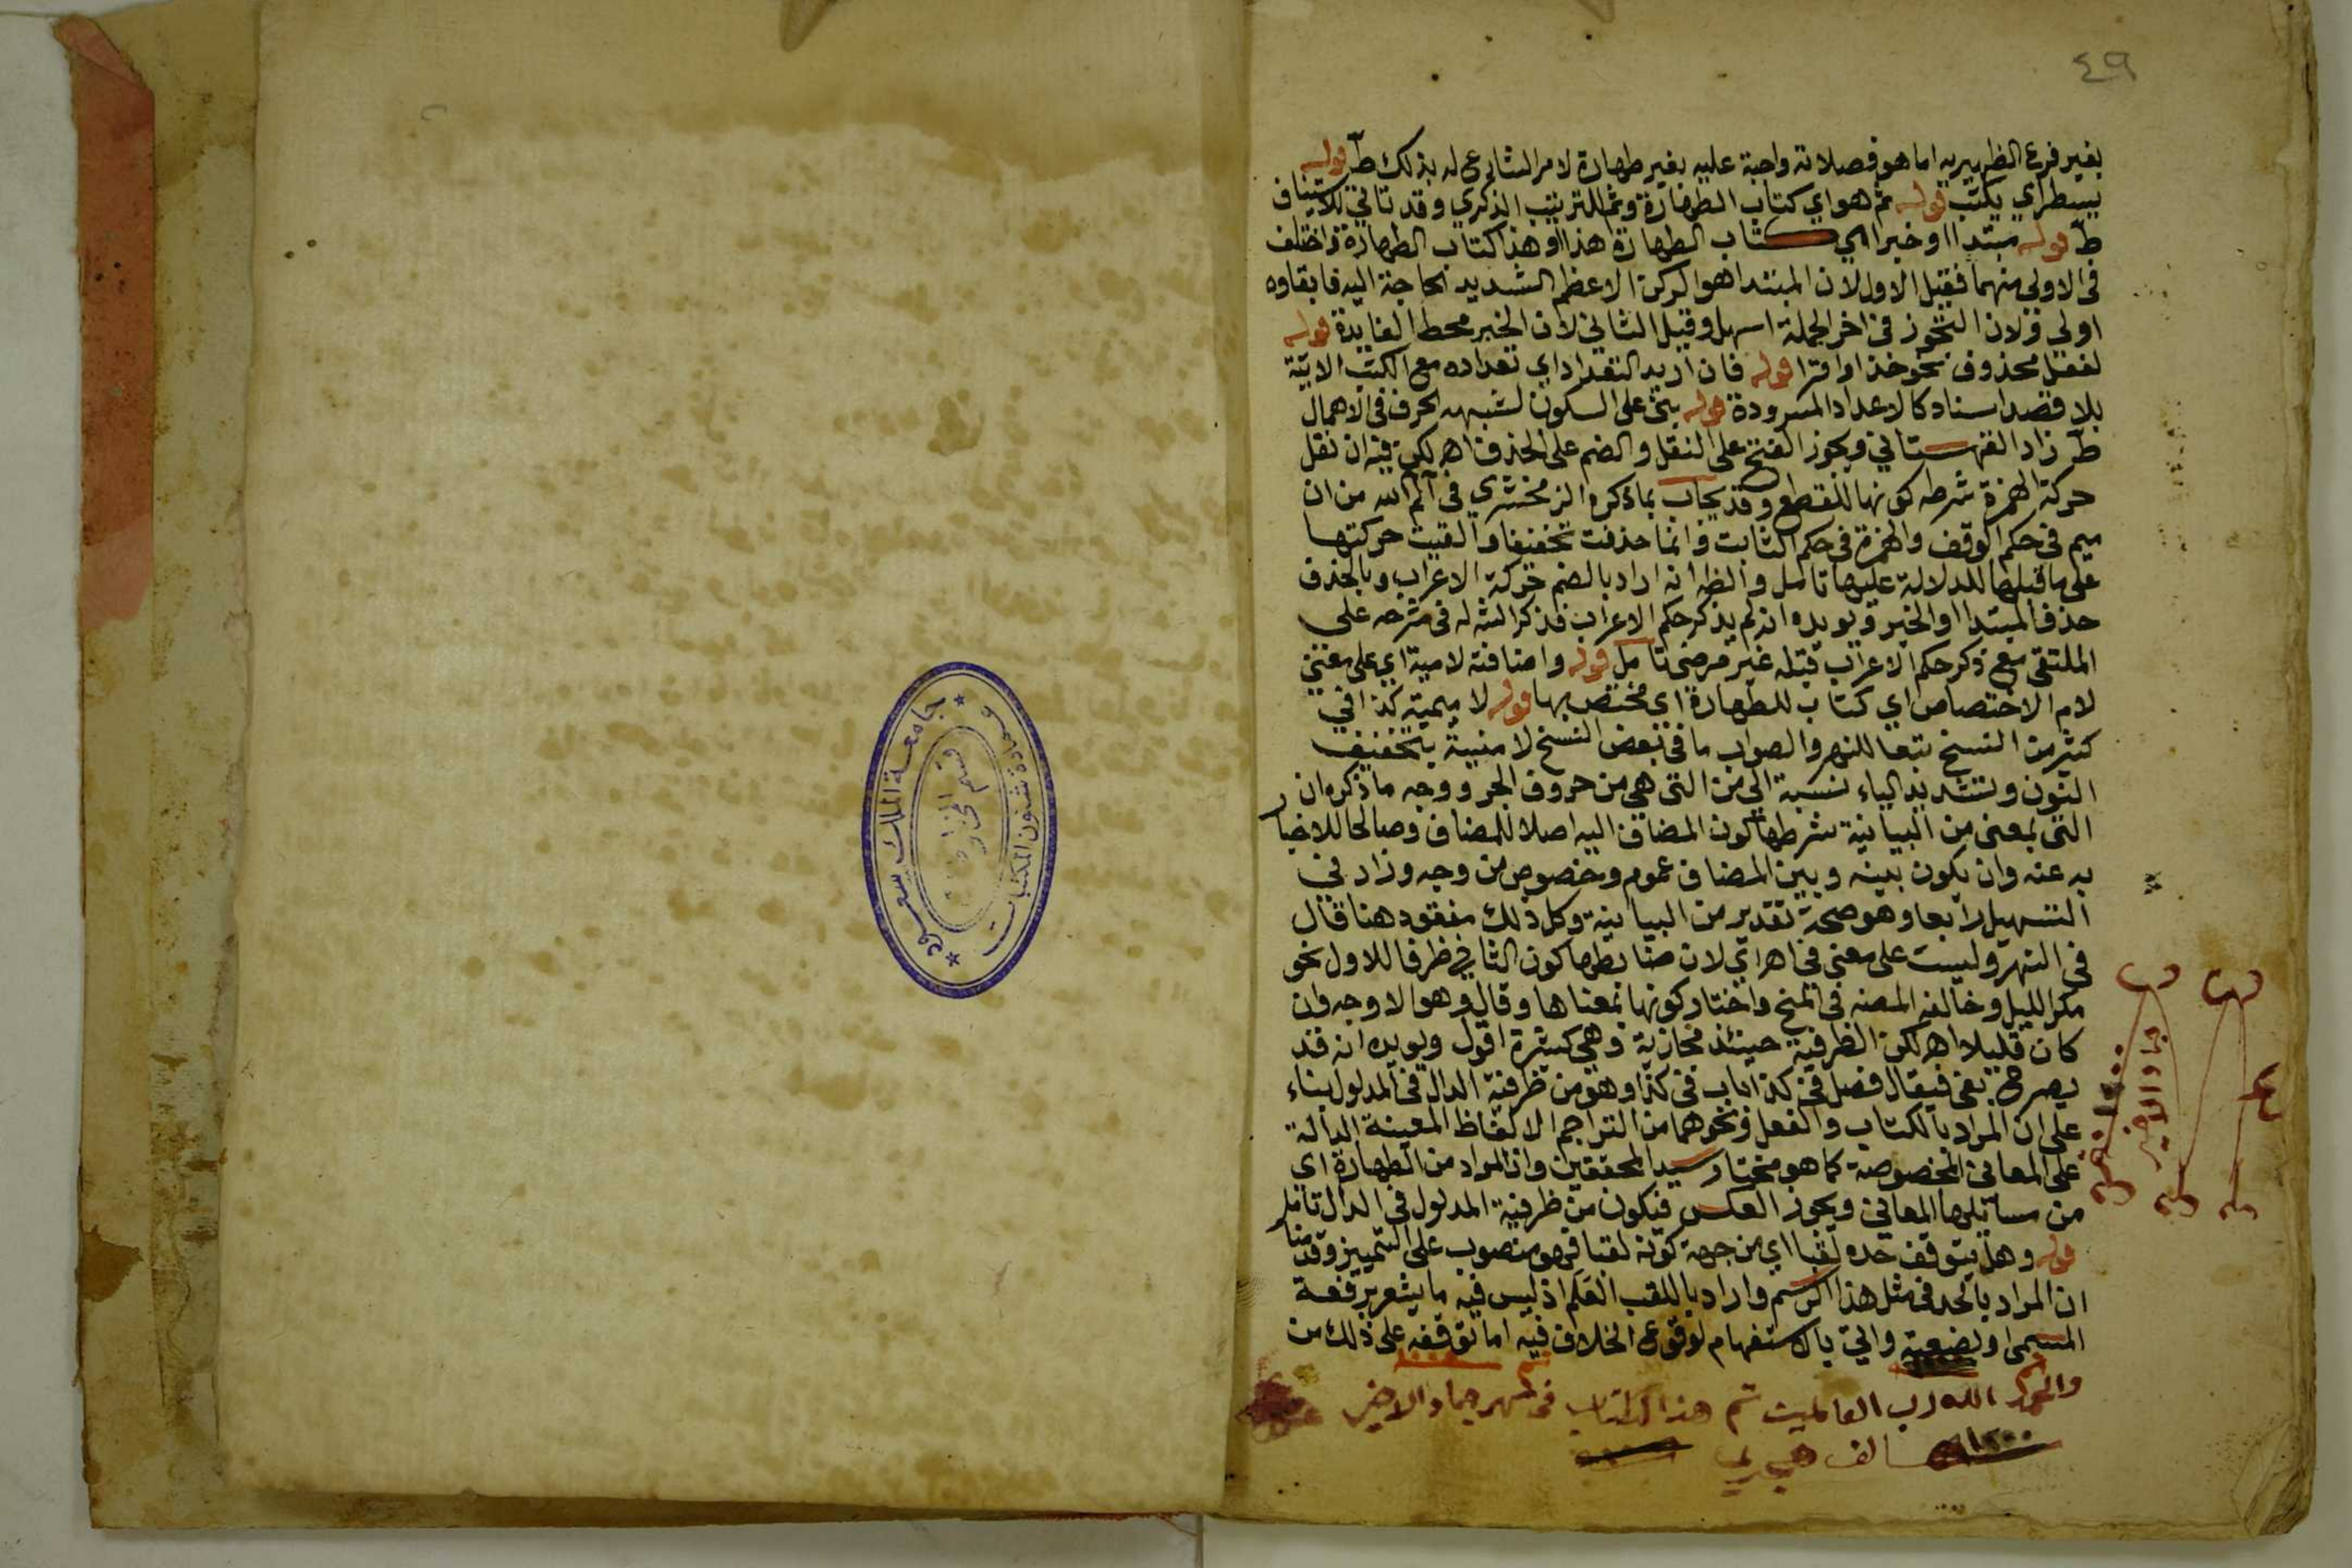 ٤٩
بغير فرع الظهيرية اما هو فصلاته واجبة عليه بغير طهارة لامر الشارع له بذلك ط قوله
يسطر اي يكتب قوله ثم هو اي كتاب الطهارة وثم للترتيب الذكري وقد تاتي للاستيناف
ط قوله مبتدا او خبر اي كتاب الطهارة هذا او هذا كتاب الطهارة واختلف
في الاولى منهما فقيل الاول لان المبتدا هو الركن الاعظم الشديد الحاجة اليه فابقاوه
اولى ولان التجوز في اخر الجملة اسهل وقيل الثاني لان الخبر محط الفايدة قوله
لفعل محذوف نحو خذ او اقرا قوله فان اريد التعداد اي تعداده مع الكتب الاتية
بلا قصد اسناد كالاعداد المسرودة قوله بني على السكون لشبهه الحرف في الاهمال
ط زاد القهستاني ويجوز الفتح على النقل والضم على الحذف اهـ لكن فيه ان نقل
حركة الهمزة شرطه كونها للقطع وقد يجاب بما ذكره الزمخشري في الم الله من ان
ميم في حكم الوقف والهمزة في حكم الثابت وانما حذفت تخفيفا والقيت حركتها
على ما قبلها للدلالة عليها تامل والظ انه اراد بالضم حركة الاعراب وبالحذف
حذف المبتدا او الخبر ويويده انه لم يذكر حكم الاعراب فذكر الش له في شرحه على
الملتقى مع ذكر حكم الاعراب قبله غير مرضي تامل قوله واضافته لامية اي على معنى
لام الاختصاص اي كتاب للطهارة اي مختص بها قوله لا ميمية كذا في
كثير من النسخ تبعا للنهر والصواب ما في بعض النسخ لا منية بتخفيف
النون وتشديد الياء نسبة الى من التي هي من حروف الجر ووجه ما ذكره ان
التي بمعنى من البيانية شرطها كون المضاف اليه اصلا للمضاف وصالحا للاخبار
به عنه وان يكون بينه وبين المضاف عموم وخصوص من وجه وزاد في
التسهيل رابعا وهو صحة تقدير من البيانية وكل ذلك مفقود هنا قال
في النهر وليست على معنى في اهـ اي لان ضابطها كون الثاني ظرفا للاول نحو
مكر الليل وخالفه المصنف في المنح واختار كونها بمعناها وقال وهو الاوجه وان
كان قليلا اهـ لكن الظرفية حينئذ مجازية وهي كثيرة اقول ويويده انه قد
يصرح بفي فيقال فصل في كذا باب في كذا وهو من ظرفية الدال في المدلول بناء
على ان المراد بالكتاب والفصل ونحوهما من التراجم الالفاظ المعينة الدالة
على المعاني المخصوصة كما هو مختار سيد المحققين وان المراد من الطهارة اي
من مسائلها المعاني ويجوز العكس فيكون من ظرفية المدلول في الدال تامل
قوله وهل يتوقف حده لقبا اي من جهة كونه لقبا فهو منصوب على التمييز وقدمنا
ان المراد بالحد في مثل هذا الرسم واراد باللقب العلم اذ ليس فيه ما يشعر برفعة
المسمى او بضعيه واتى بالاستفهام لوقوع الخلاف فيه اما توقفه على ذلك من
والحمد الله رب العالمين تم هذا الكتاب في شهر جماد الاخير
١٢٠٠ الف هجري
جماد الاخير
جامعة الملك سعود
عمادة شئون المكتبات
قسم المخطوطات